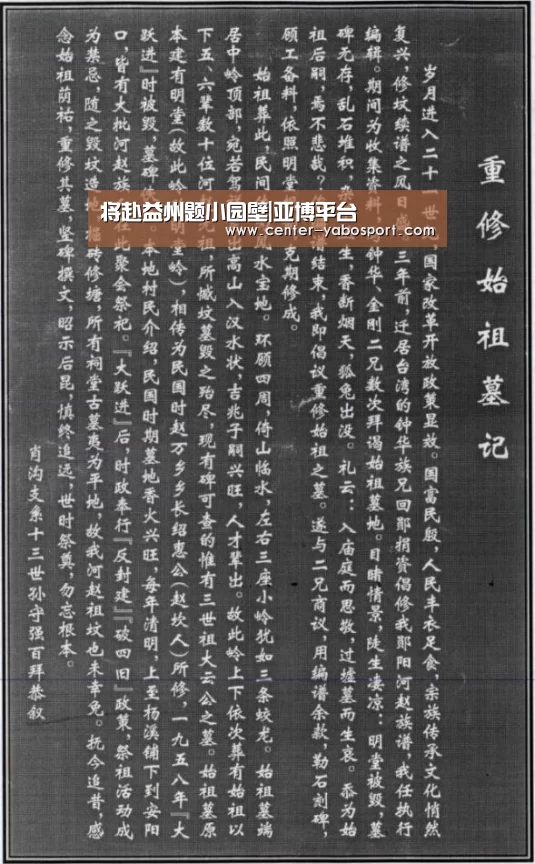 重修始祖墓记
岁月进入二十一世,国家改革开放政策显效。国富民殷,人民丰衣足食,宗族传承文化悄然
复兴,修坟续谱之风日盛。三年前,迁居台湾的钟华族兄回郧捐资倡修我郧阳河赵族谱,我任执行
编辑。期间为收集资料,与钟华、金刚二兄数次拜谒始祖墓地。目睹情景,陡生凄凉:明堂被毁,墓
碑无存,乱石堆积,生,香断烟天,狐兔出没。礼云:入庙庭而思敬,过墟墓而生哀。忝为始
祖后嗣,焉不悲哉?谱结束,我即倡议重修始祖之墓。遂与二兄商议,用编谱余款,勒石刻碑,
顾工备料,依照明堂克期修成。
始祖葬此,民间风水宝地。环顾四周,倚山临水,左右三座小岭犹如三条蛟龙。始祖墓端
居中岭顶部,宛若出高山入汉水状,吉兆子嗣兴旺,人才辈出。故此岭上下依次葬有始祖以
下五、六辈数十位河先祖。所憾坟墓毁之殆尽,现有碑可查的惟有三世祖大云公之墓。始祖墓原
本建有明堂(故此岭明堂岭)相传为民国时赵万乡乡长绍惠公(赵坎人)所修,一九五八年『大
跃进』时被毁,墓碑。本地村民介绍,民国时期墓地香火兴旺,每年清明,上至杨溪铺下到安阳
口,皆有大批河赵族在此聚会祭祀。『大跃进』后,时政奉行『反封建』『破四旧』政策,祭祖活动成
为禁忌,随之毁坟造地、掘砖修塘,所有祠堂古墓夷为平地,故我河赵祖坟也未幸免。抚今追昔,感
念始祖荫祐,重修其墓,竖碑撰文,昭示后昆,慎终追远,世时祭奠,勿忘根本。
肖沟支系十三世孙守强百拜恭叙
将赴益州题小园壁|亚博平台
www.center-yabosport.com